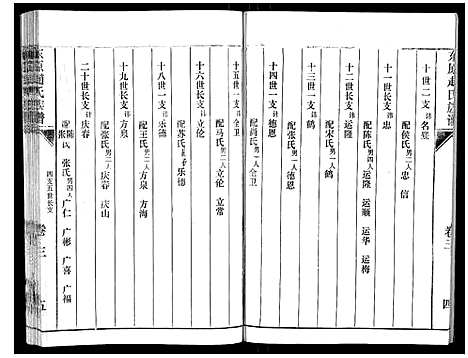 东原赵氏族谱
卷三
四
十世二支讳名冕
配侯氏男二人 忠 信
十一世长支讳忠
配陈氏男四人 运隆 运顺 运华 运梅
十二世长支讳运隆
配宋氏男一人 鹤
十三世长支讳鹤
配张氏男一人 德恩
十四世长支讳德恩
配尚氏男一人 全卫
十五世长支讳全卫
配马氏男二人 立伦 立常
十六世长支讳立伦
配苏氏 乐德
十八世长支讳乐德
配王氏男二人 方泉 方海
十九世长支讳方泉
配张氏男二人 庆春 庆山
二十世长支讳庆春
配陈氏 张氏 张氏男四人 广仁 广彬 广喜 广福
四支五世长支
东原赵氏族谱
卷三
五